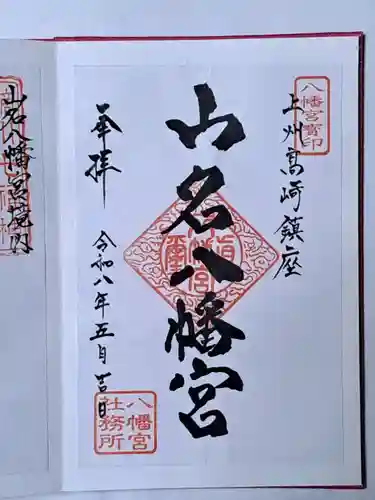 上州高崎鎮座
八幡宮寶印
山名八幡宮
奉拝
令和八年五月吉日
八幡宮
社務所
山名八幡宮境内